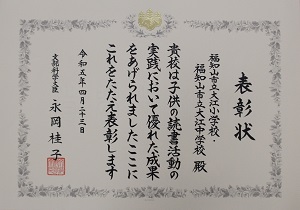 表彰状
福知山市立大江小学校・
福知山市立大江中学校 殿
貴校は子供の読書活動の
実践において優れた成果
をあげられましたここに
これをたたえ表彰します
令和五年四月二十三日
文部科学大臣 永岡桂子